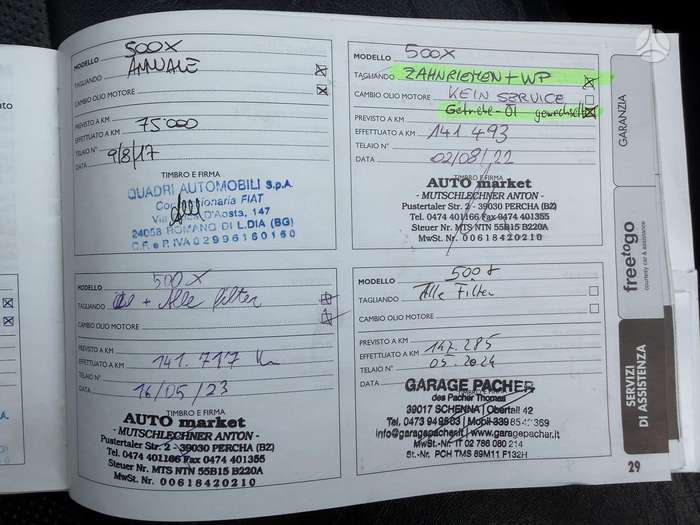 MODELLO 500X
TAGLIANDO ANNUALE
CAMBIO OLIO MOTORE
PREVISTO A KM
EFFETTUATO A KM 75000
TELAIO N°
DATA 9/8/17
TIMBRO E FIRMA
QUADRI AUTOMOBILI S.p.A.
Concessionaria FIAT
Via D'Aosta, 147
24058 ROMANO DI L.DIA (BG)
C.F. e P. IVA 02996160160
MODELLO 500X
TAGLIANDO ZAHNRIEMEN + WP
CAMBIO OLIO MOTORE KEIN SERVICE
Getriebe-Öl gewechselt
PREVISTO A KM
EFFETTUATO A KM 141.493
TELAIO N°
DATA 02/08/22
TIMBRO E FIRMA
AUTO market
- MUTSCHLECHNER ANTON -
Pustertaler Str. 2 - 39030 PERCHA (BZ)
Tel. 0474 401166 Fax 0474 401355
Steuer Nr. MTS NTN 55B15 B220A
MwSt. Nr. 00618420210
MODELLO 500X
TAGLIANDO Öl + Alle Filter
CAMBIO OLIO MOTORE
PREVISTO A KM
EFFETTUATO A KM 141.717 Km
TELAIO N°
DATA 16/05/23
TIMBRO E FIRMA
AUTO market
- MUTSCHLECHNER ANTON -
Pustertaler Str. 2 - 39030 PERCHA (BZ)
Tel. 0474 401166 Fax 0474 401355
Steuer Nr. MTS NTN 55B15 B220A
MwSt. Nr. 00618420210
MODELLO 500X
TAGLIANDO Alle Filter
CAMBIO OLIO MOTORE
PREVISTO A KM
EFFETTUATO A KM 147.285
TELAIO N° 05.2024
DATA
TIMBRO E FIRMA
GARAGE PACHER
des Pacher Thomas
39017 SCHENNA | Obertall 42
Tel. 0473 949603 | Mobil 339 8541369
info@garagepacher.it | www.garagepacher.it
MwSt.-Nr. IT 02 786 080 214
St.-Nr. PCH TMS 89M11 F132H
GARANZIA
freetogo
courtesy car & assistance
SERVIZI
DI ASSISTENZA
29